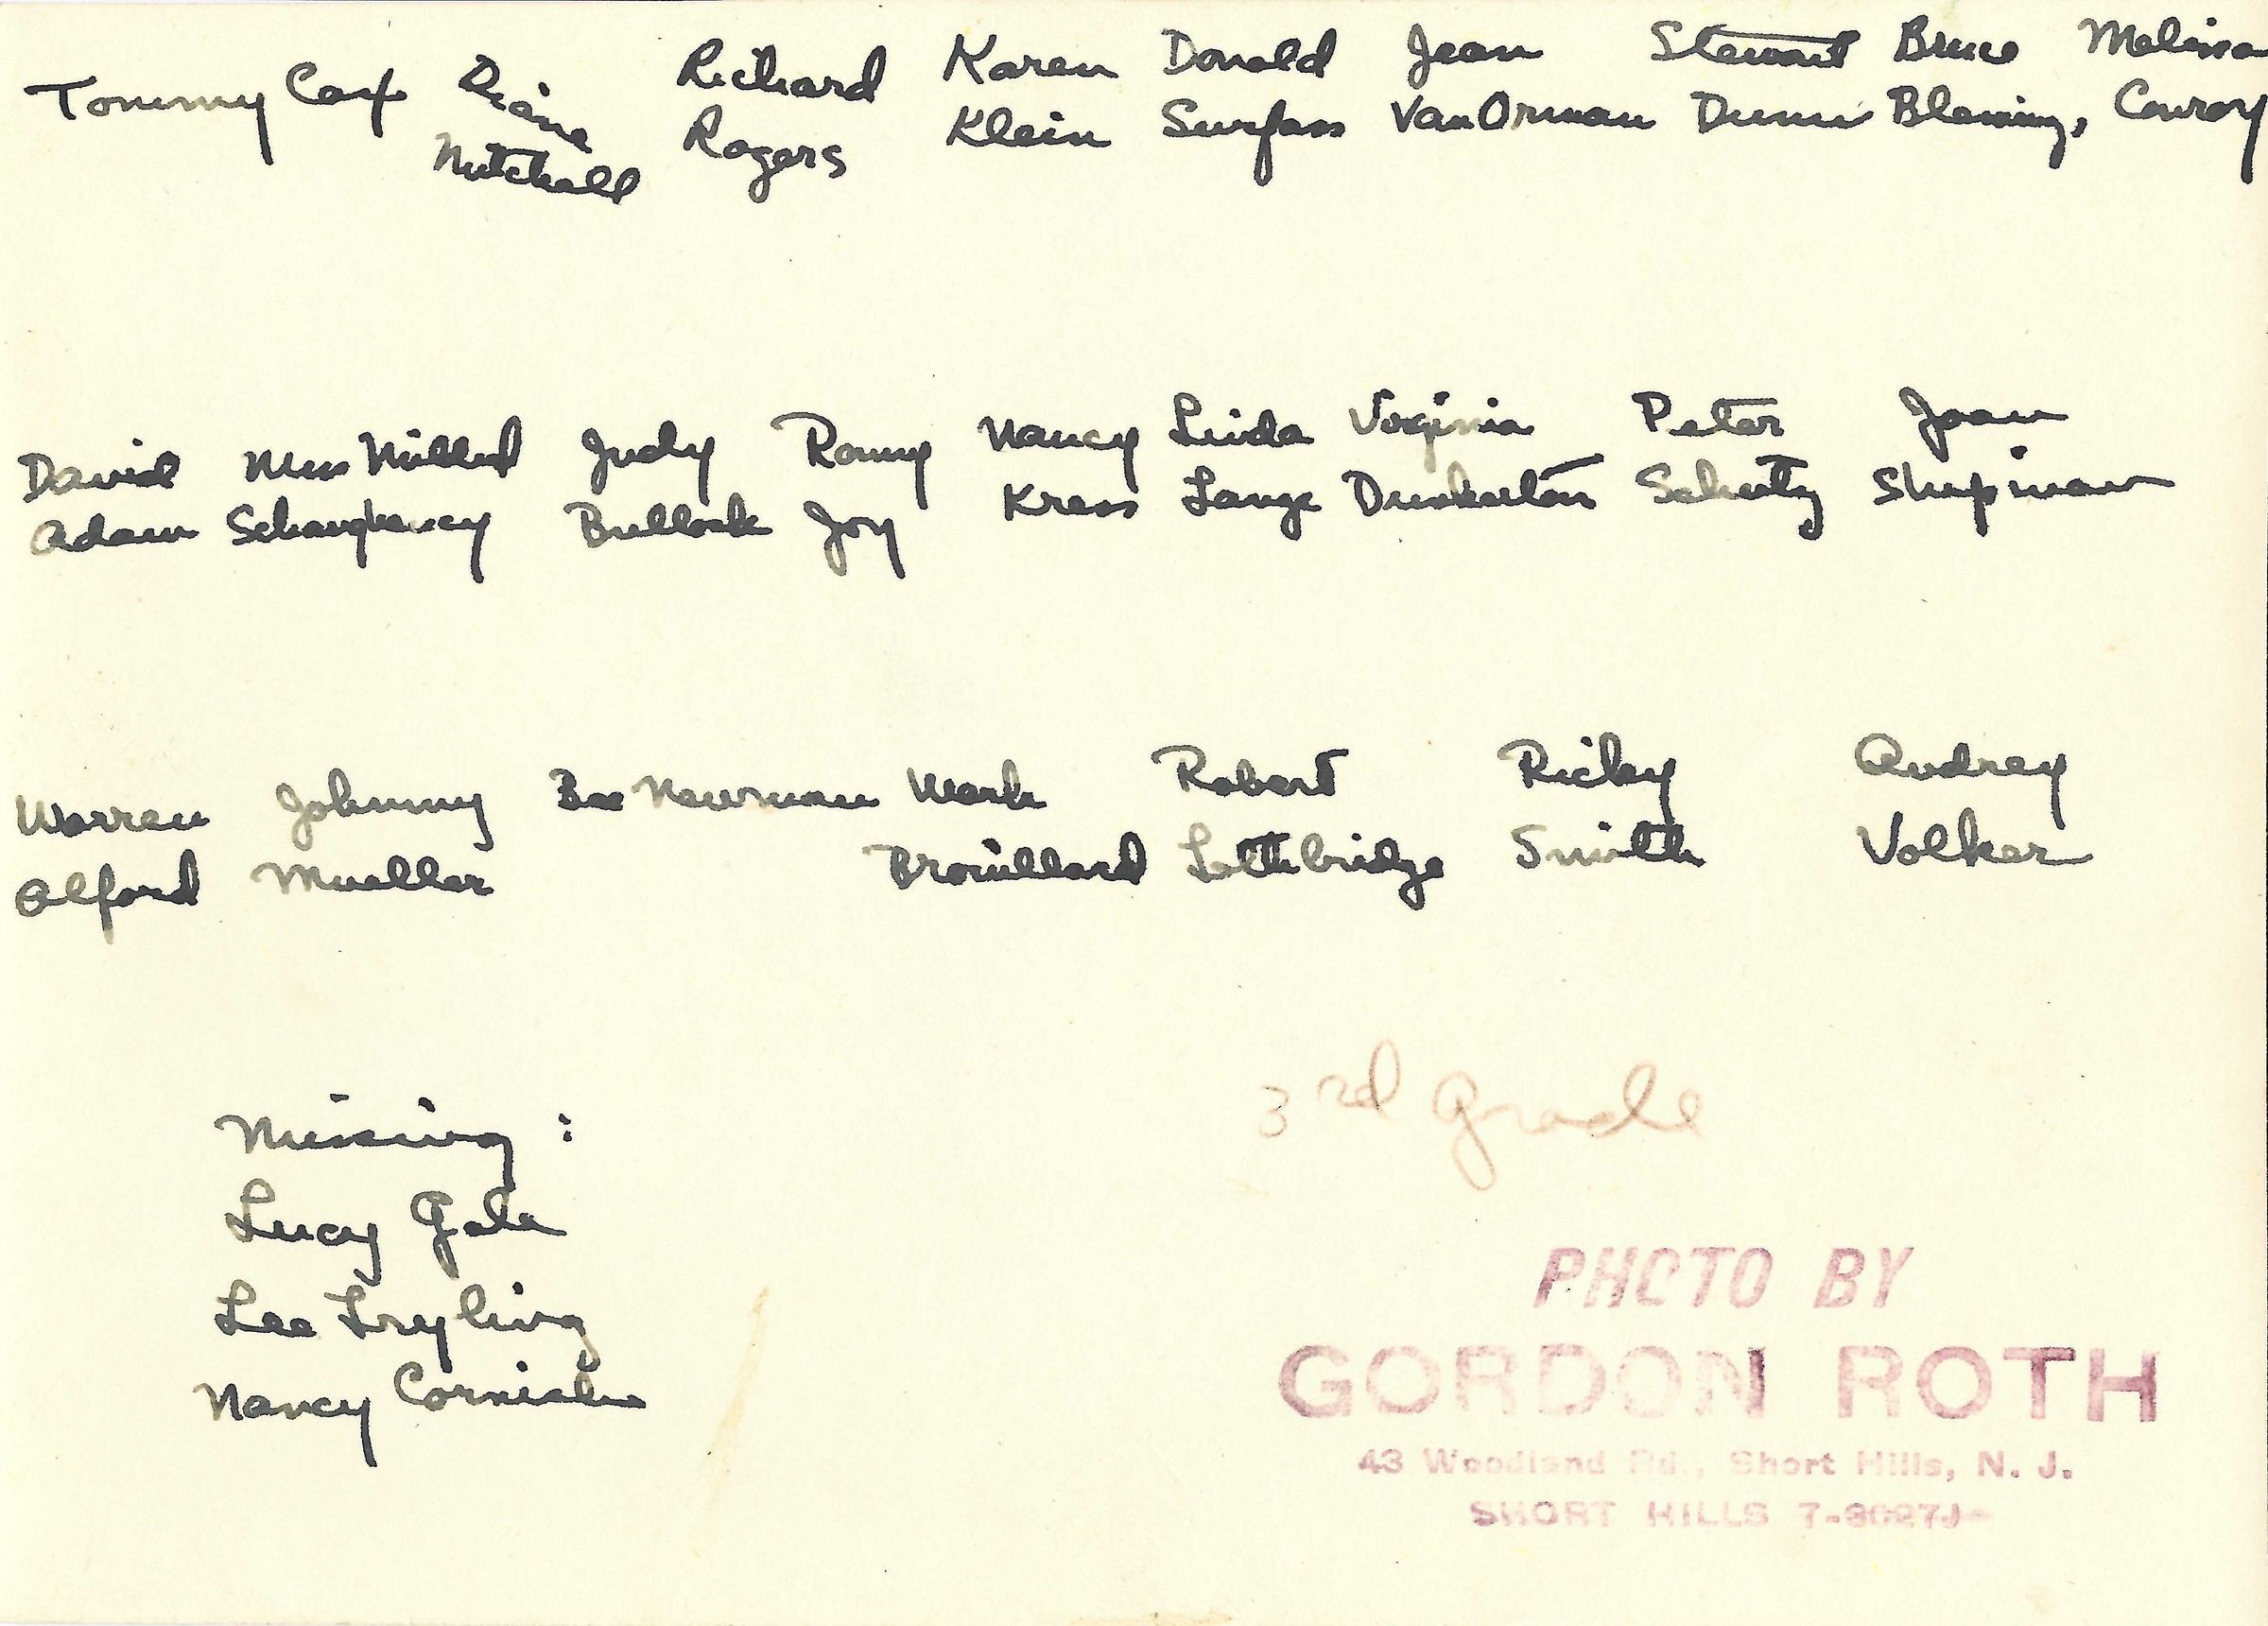 Tommy Cox Diane Richard Karen Donald Jean Stewart Bruce Melissa
Mitchell Rogers Klein Surfass VanOrman Dunn Blaming, Conroy
David Miss Judy Ronny Nancy Linda Virginia Peter Joan
Adam Bullock Joy Kress Lange Dunkerton Schutz Shipman
Warren Johnny Bee Newman Mark Robert Ricky Audrey
Alford Mueller Brouillard Lethbridge Smith Volker
Missing :
Lucy Gale
Lee
Nancy Cornish
3rd grade
PHOTO BY
GORDON ROTH
43 Woodland Rd., Short Hills, N. J.
SHORT HILLS